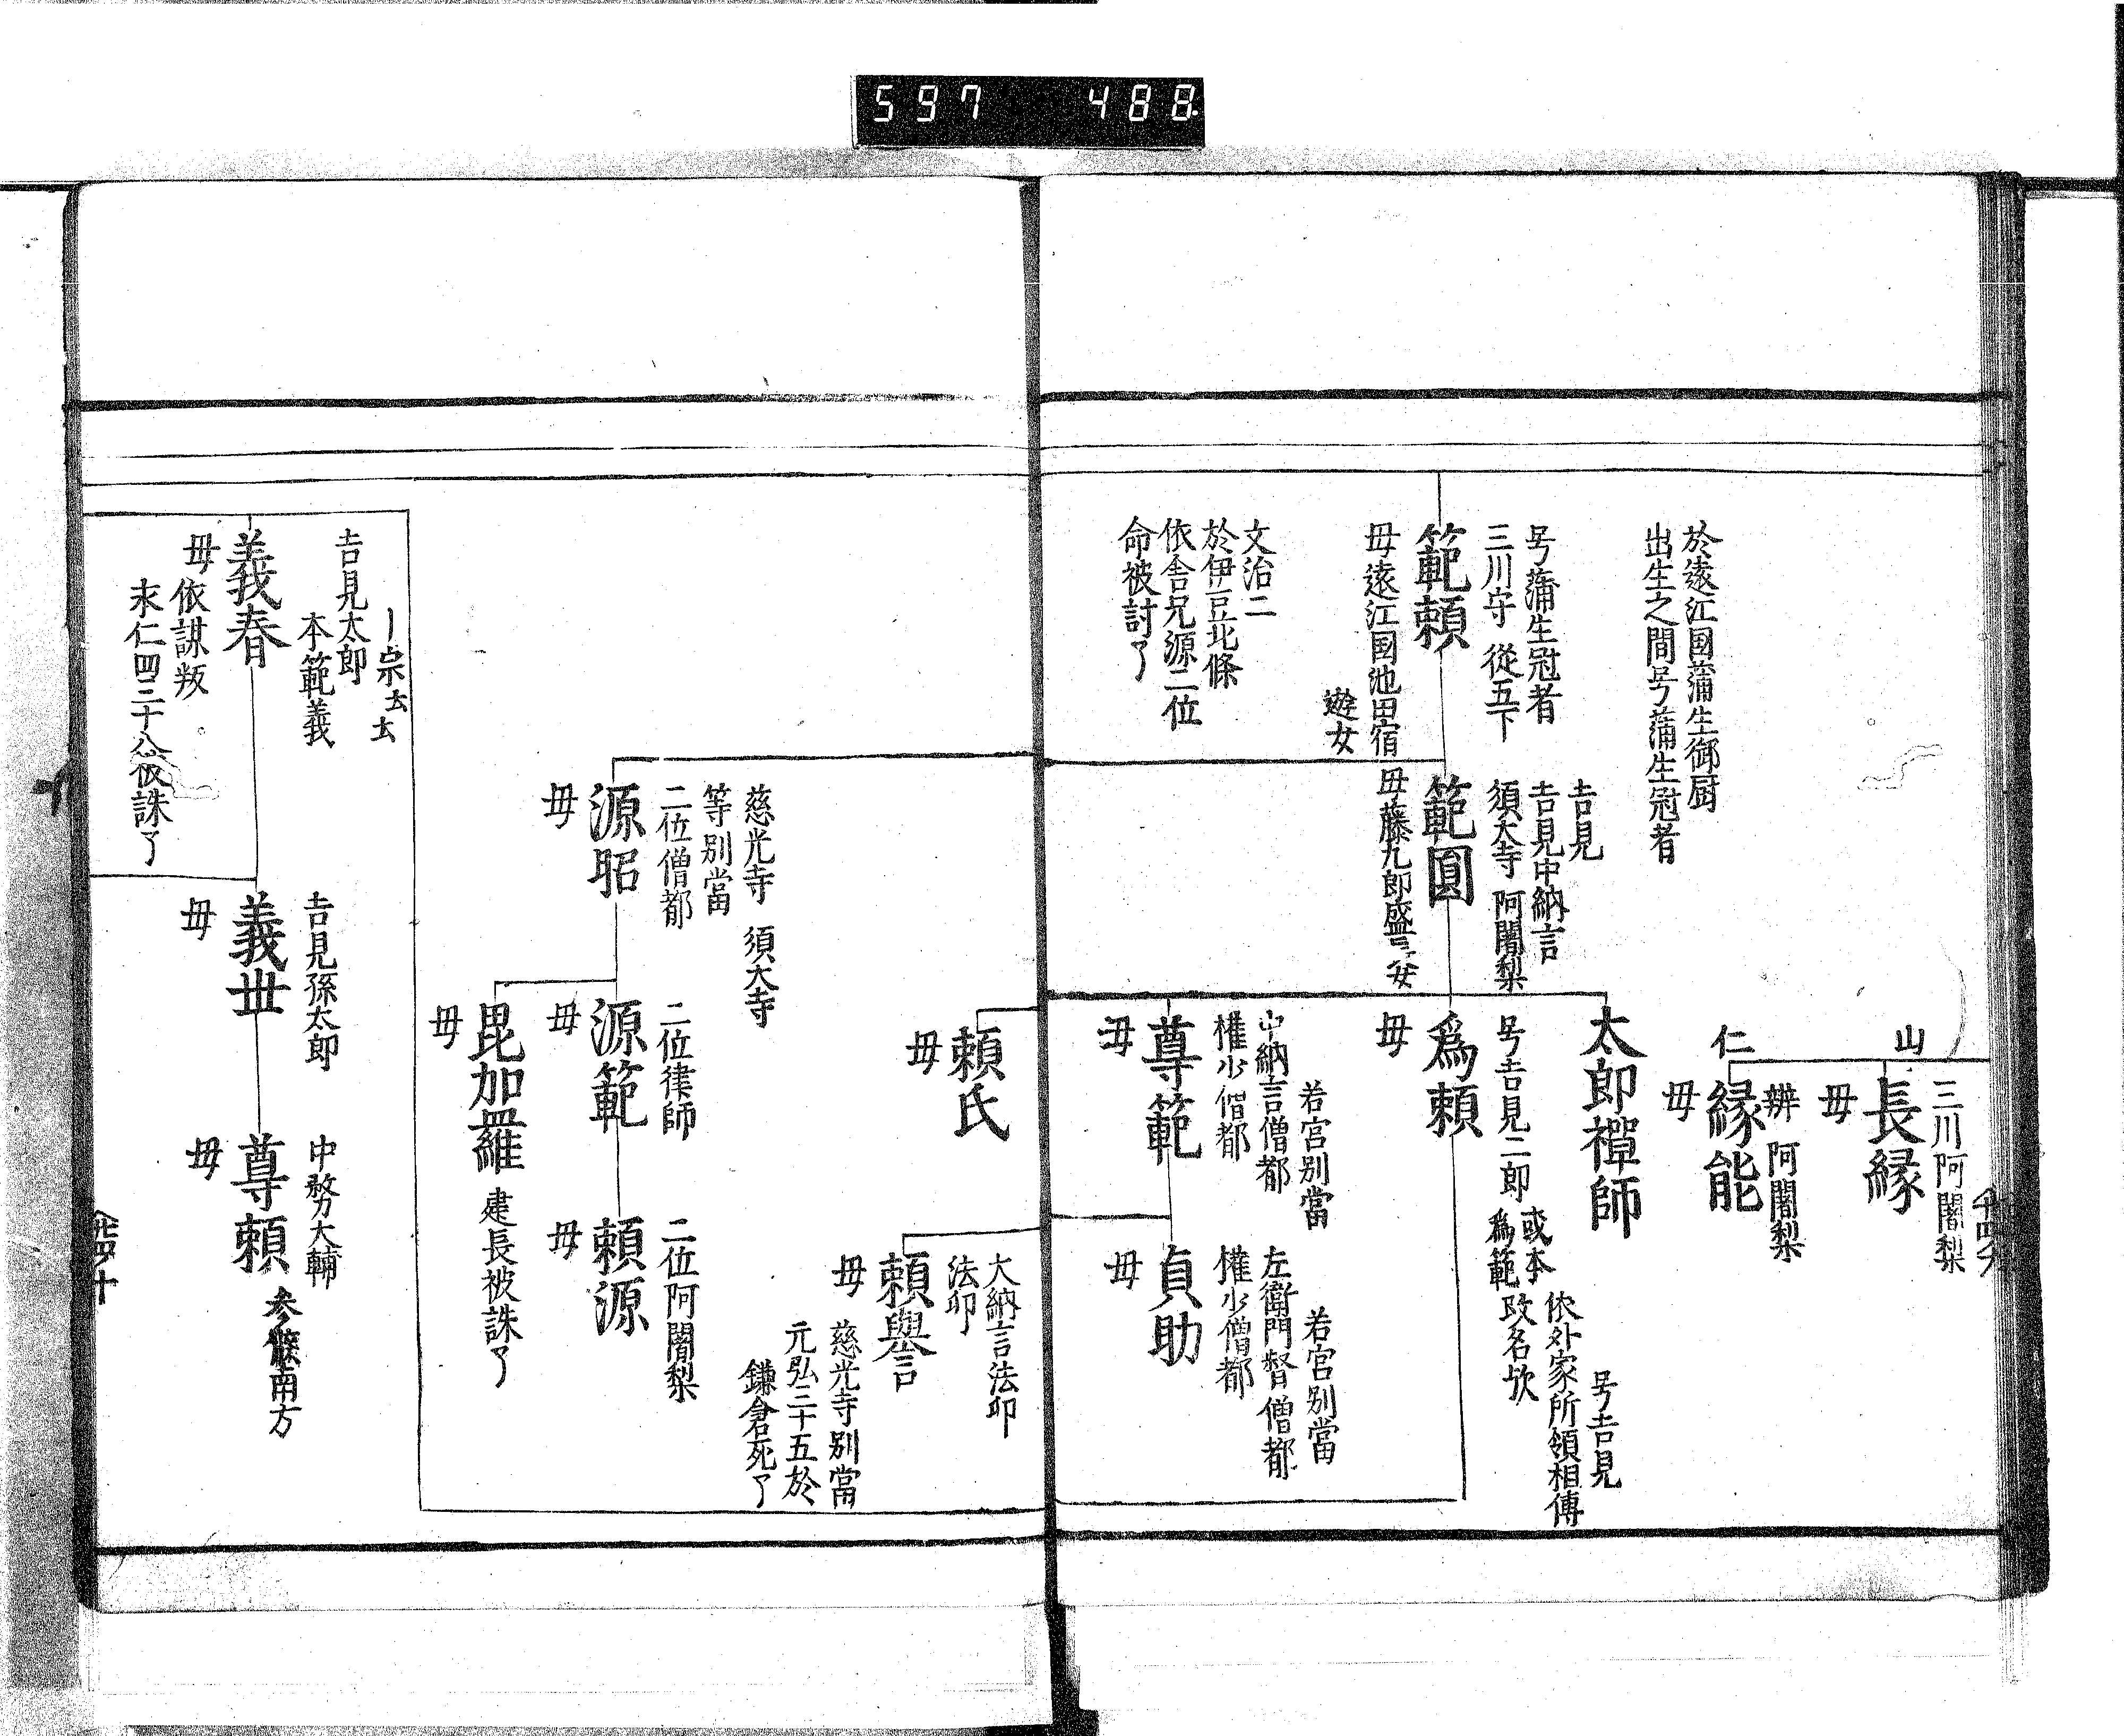 597 488
三川阿闍梨
山
長縁
母
辨 阿闍梨
仁
縁能
母
於遠江国蒲生御厨
出生之間号蒲生冠者
号蒲生冠者
三川守 從五下
範頼
母遠江国池田宿
遊女
文治二
於伊豆北條
依舎兄源二位
命被討了
吉見
吉見中納言
須大寺 阿闍梨
範圓
母藤九郎盛〻女
太郎禅師
号吉見二郎
或本
爲範
改名欤
号吉見
依外家所領相傳
爲頼
母
若宮別當
中納言僧都
権少僧都
尊範
母
若宮別當
左衛門督僧都
権少僧都
貞助
母
頼氏
母
大納言法印
法印
頼譽
母
慈光寺別當
元弘三十五於
鎌倉死了
慈光寺 須大寺
等別當
二位僧都
源昭
母
二位律師
源範
母
二位阿闍梨
頼源
母
毘加羅
建長被誅了
母
吉見太郎
本範義
義春
母
依謀叛
末仁四三十
誅了
吉見孫太郎
義世
母
中務大輔
尊頼
南方
母